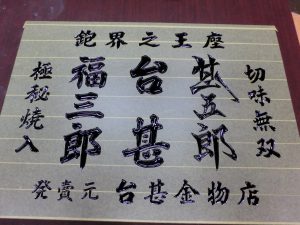 鉋界之王座
切味無双
甚五郎
台甚
福三郎
極秘焼入
発売元 台甚金物店